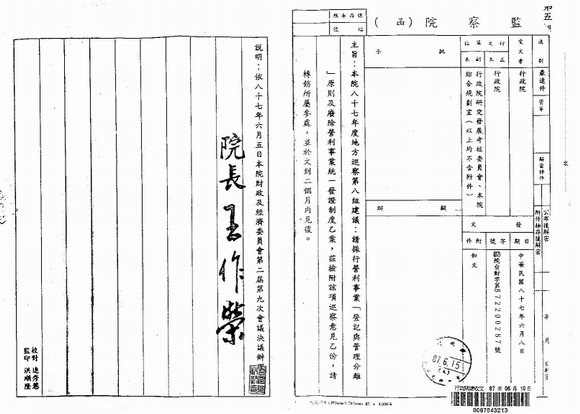 監察院（函）
保存年限
號檔
速別
最速件
密等
解密條件
公布後解密
附件抽存後解密
年 月
受文者
行政院
行文單位
正本
行政院
副本
行政院研究發展考核委員會、本院
綜合規劃室（以上均不含附件）
發文
日期
中華民國八十七年六月八日
字號
872200287號
附件
如文
批示
擬辦
主旨：本院八十七年度地方巡察第八組建議：請採行營利事業「登記與管理分離
」原則及廢除營利事業統一發證制度乙案，茲檢附該項巡察意見乙份，請
轉飭所屬參處，並於文到二個月內見復。
說明：依八十七年六月五日本院財政及經濟委員會第二屆第九次會議決議辦
院長 王作榮
校對
監印
87.6.15
87年06月10日
0087043213